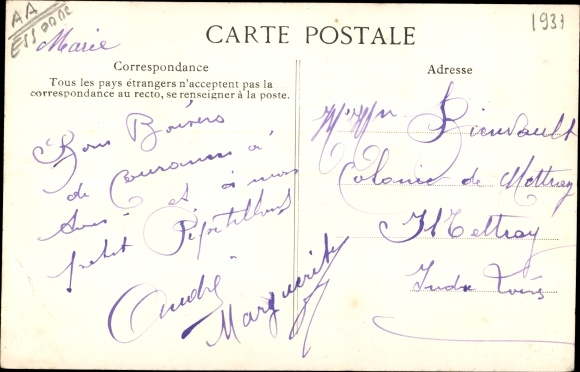 AA
ESSONNE
Marie
1931
CARTE POSTALE
Correspondance
Tous les pays étrangers n'acceptent pas la
correspondance au recto, se renseigner à la poste.
Bons Baisers
de Courances à
tous et à mon
petit
André
Marguerite
Adresse
Mr Mme Bienvault
Colonie de Mettray
Mettray
Indre Loire